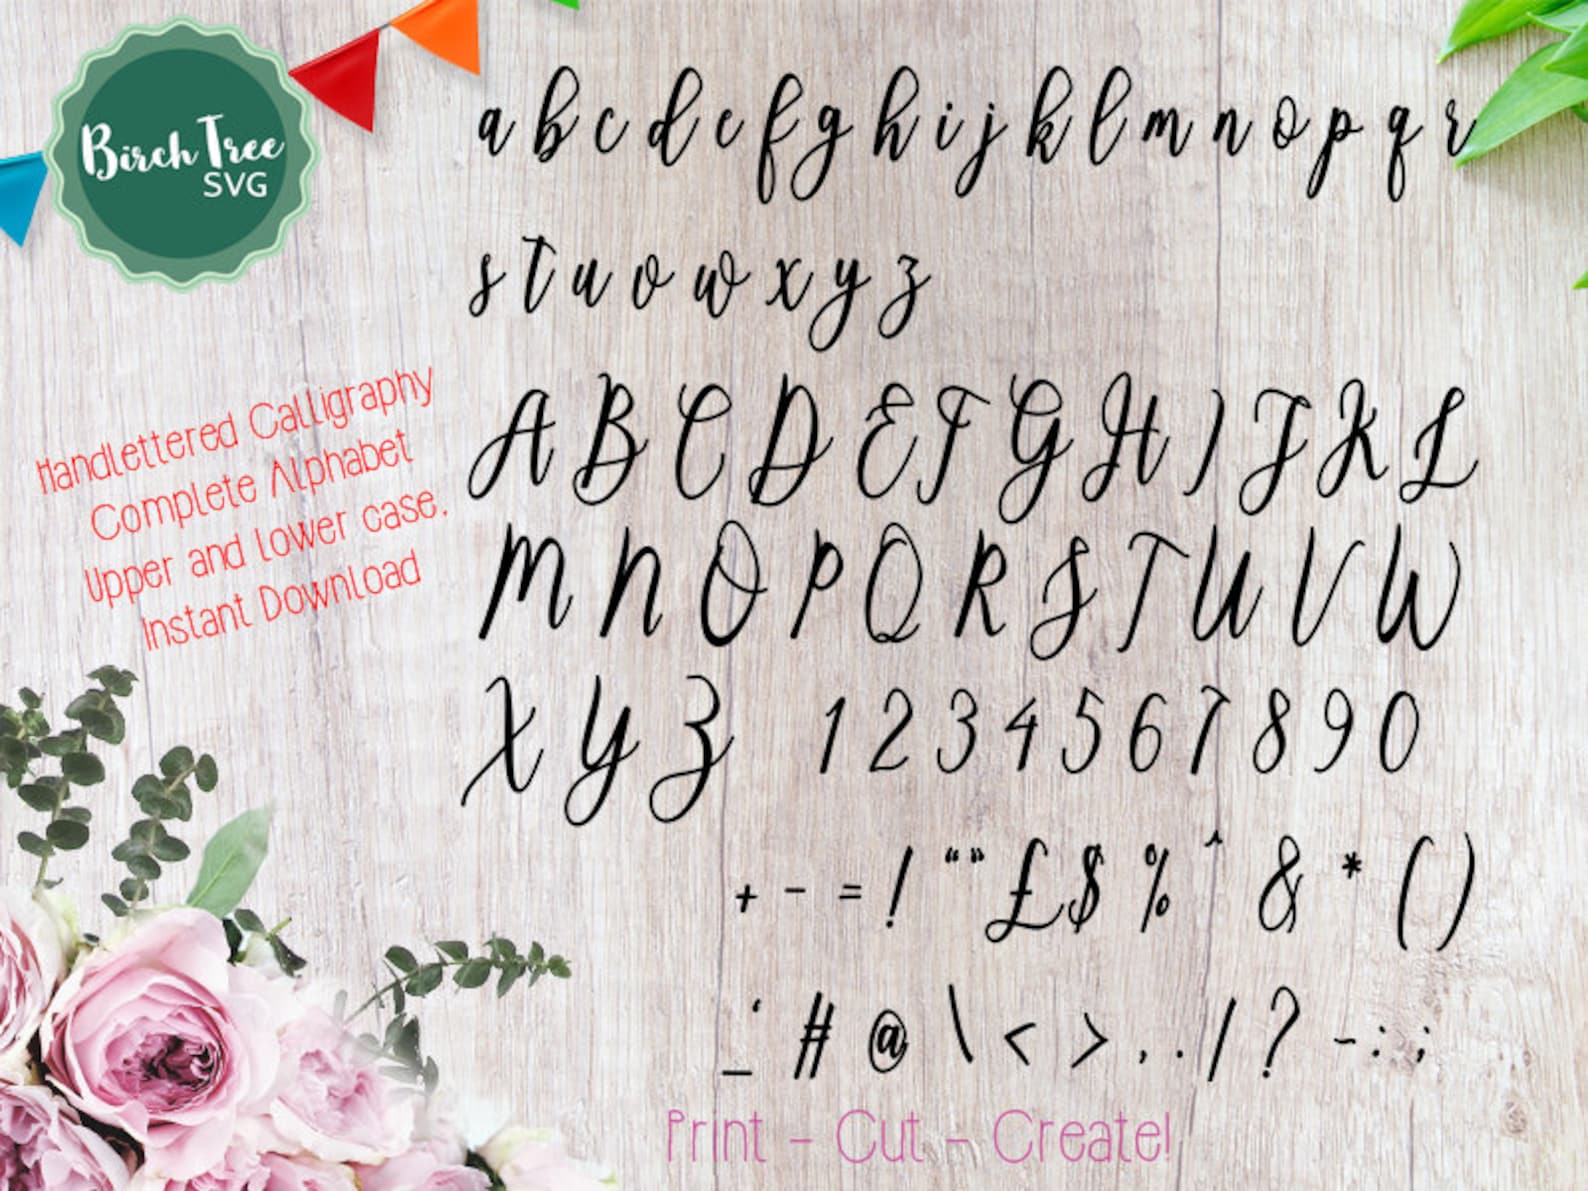 Birch Tree
SVG
a b c d e f g h i j k l m n o p q r
s t u v w x y z
Handlettered Calligraphy
Complete Alphabet
Upper and Lower case,
Instant Download
A B C D E F G H I J K L
M N O P Q R S T U V W
X Y Z 1 2 3 4 5 6 7 8 9 0
+ - = ! “ ” £ $ % ^ & * ( )
_ ‘ # @ \ < > , . / ? ~ : ;
Print - Cut - Create!